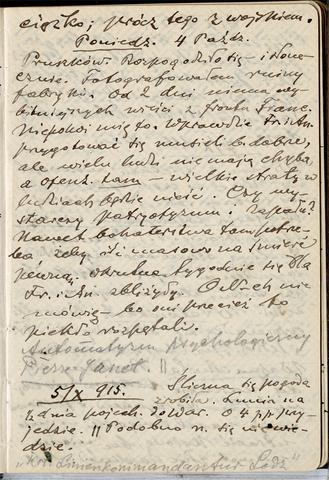 ciężko; prócz tego z wojskiem.
Poniedz. 4 Paźdz.
Pruszków. Rozpogodziło się i słone-
cznie. Fotografowałem ruiny
fabryki. Od 2 dni niema wy-
bitniejszych wieści z frontu Franc.
Niepokoi mię to. Wprawdzie Fr. i An.
przygotować się musieli b. dobrze,
ale wielu ludzi nie mają chyba,
a ofenz. tam – wielkie straty w
ludziach będzie nieść. Czy wy-
starczy patryotyzmu. Zapału?
Nawet bohaterstwa tam potrze-
ba, żeby iść masowo na śmierć
pewną. Okrutne tygodnie się dla
Fr. i An. zbliżają. O tych nie
mówię – bo oni przecież to
piekło rozpętali.
Automatyzm psychologiczny
Pierre Janet ||
5/X 915. Śliczna się pogoda
zrobiła. Lunia na
dnia pojech. do War. O 4 pp przy-
jedzie. || Podobno n. się nie wie-
dzie.
"Kos. Linienkommandantur Lodz"